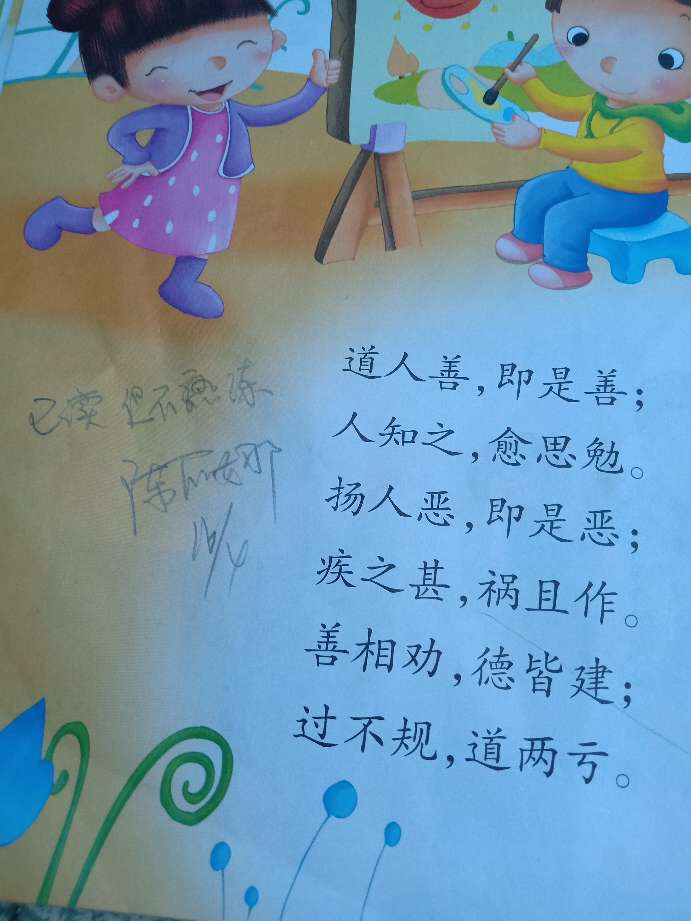 道人善，即是善；
人知之，愈思勉。
扬人恶，即是恶；
疾之甚，祸且作。
善相劝，德皆建；
过不规，道两亏。
已读 但不熟练
16/4